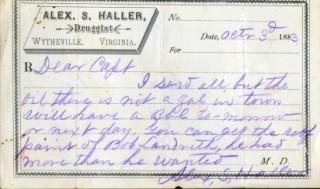 ALEX. S. HALLER,
Druggist
WYTHEVILLE, VIRGINIA.
No.
Date, Octr 3d 1883
For
R Dear Capt
I send all but the
oil there is not a gal in town
will have a Bbl to-morrow
or next day. You can get the roof
paint of Bob Landreth, he had
more than he wanted
M. D.
Alex. S. Haller